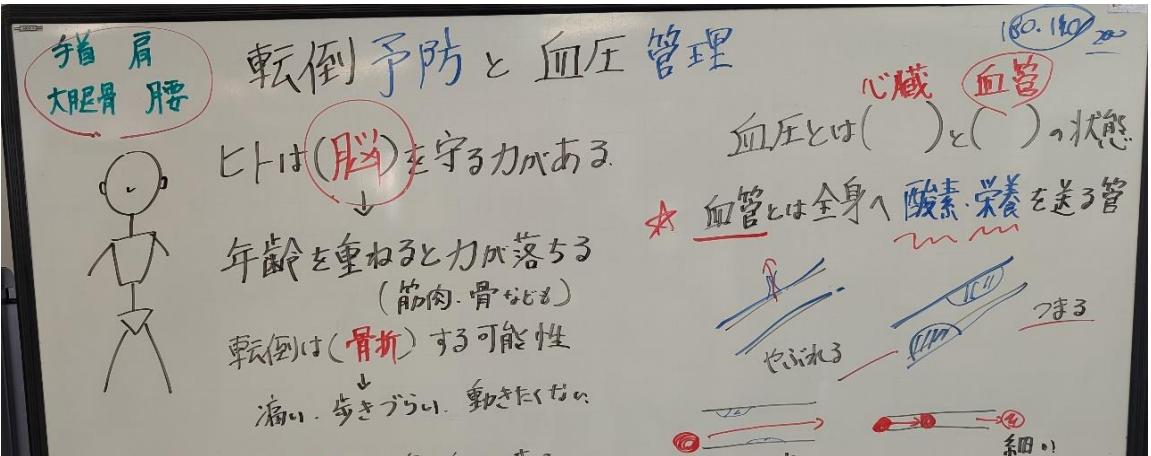 手首 肩
大腿骨 腰
転倒予防と血圧管理
180.140
200
ヒトは(脳)を守る力がある
↓
年齢を重ねると力が落ちる
(筋肉.骨なども)
転倒は(骨折)する可能性
↓
痛い.歩きづらい.動きたくない
心臓 血管
血圧とは( )と( )の状態
☆ 血管とは全身へ酸素.栄養を送る管
やぶれる
つまる
細い